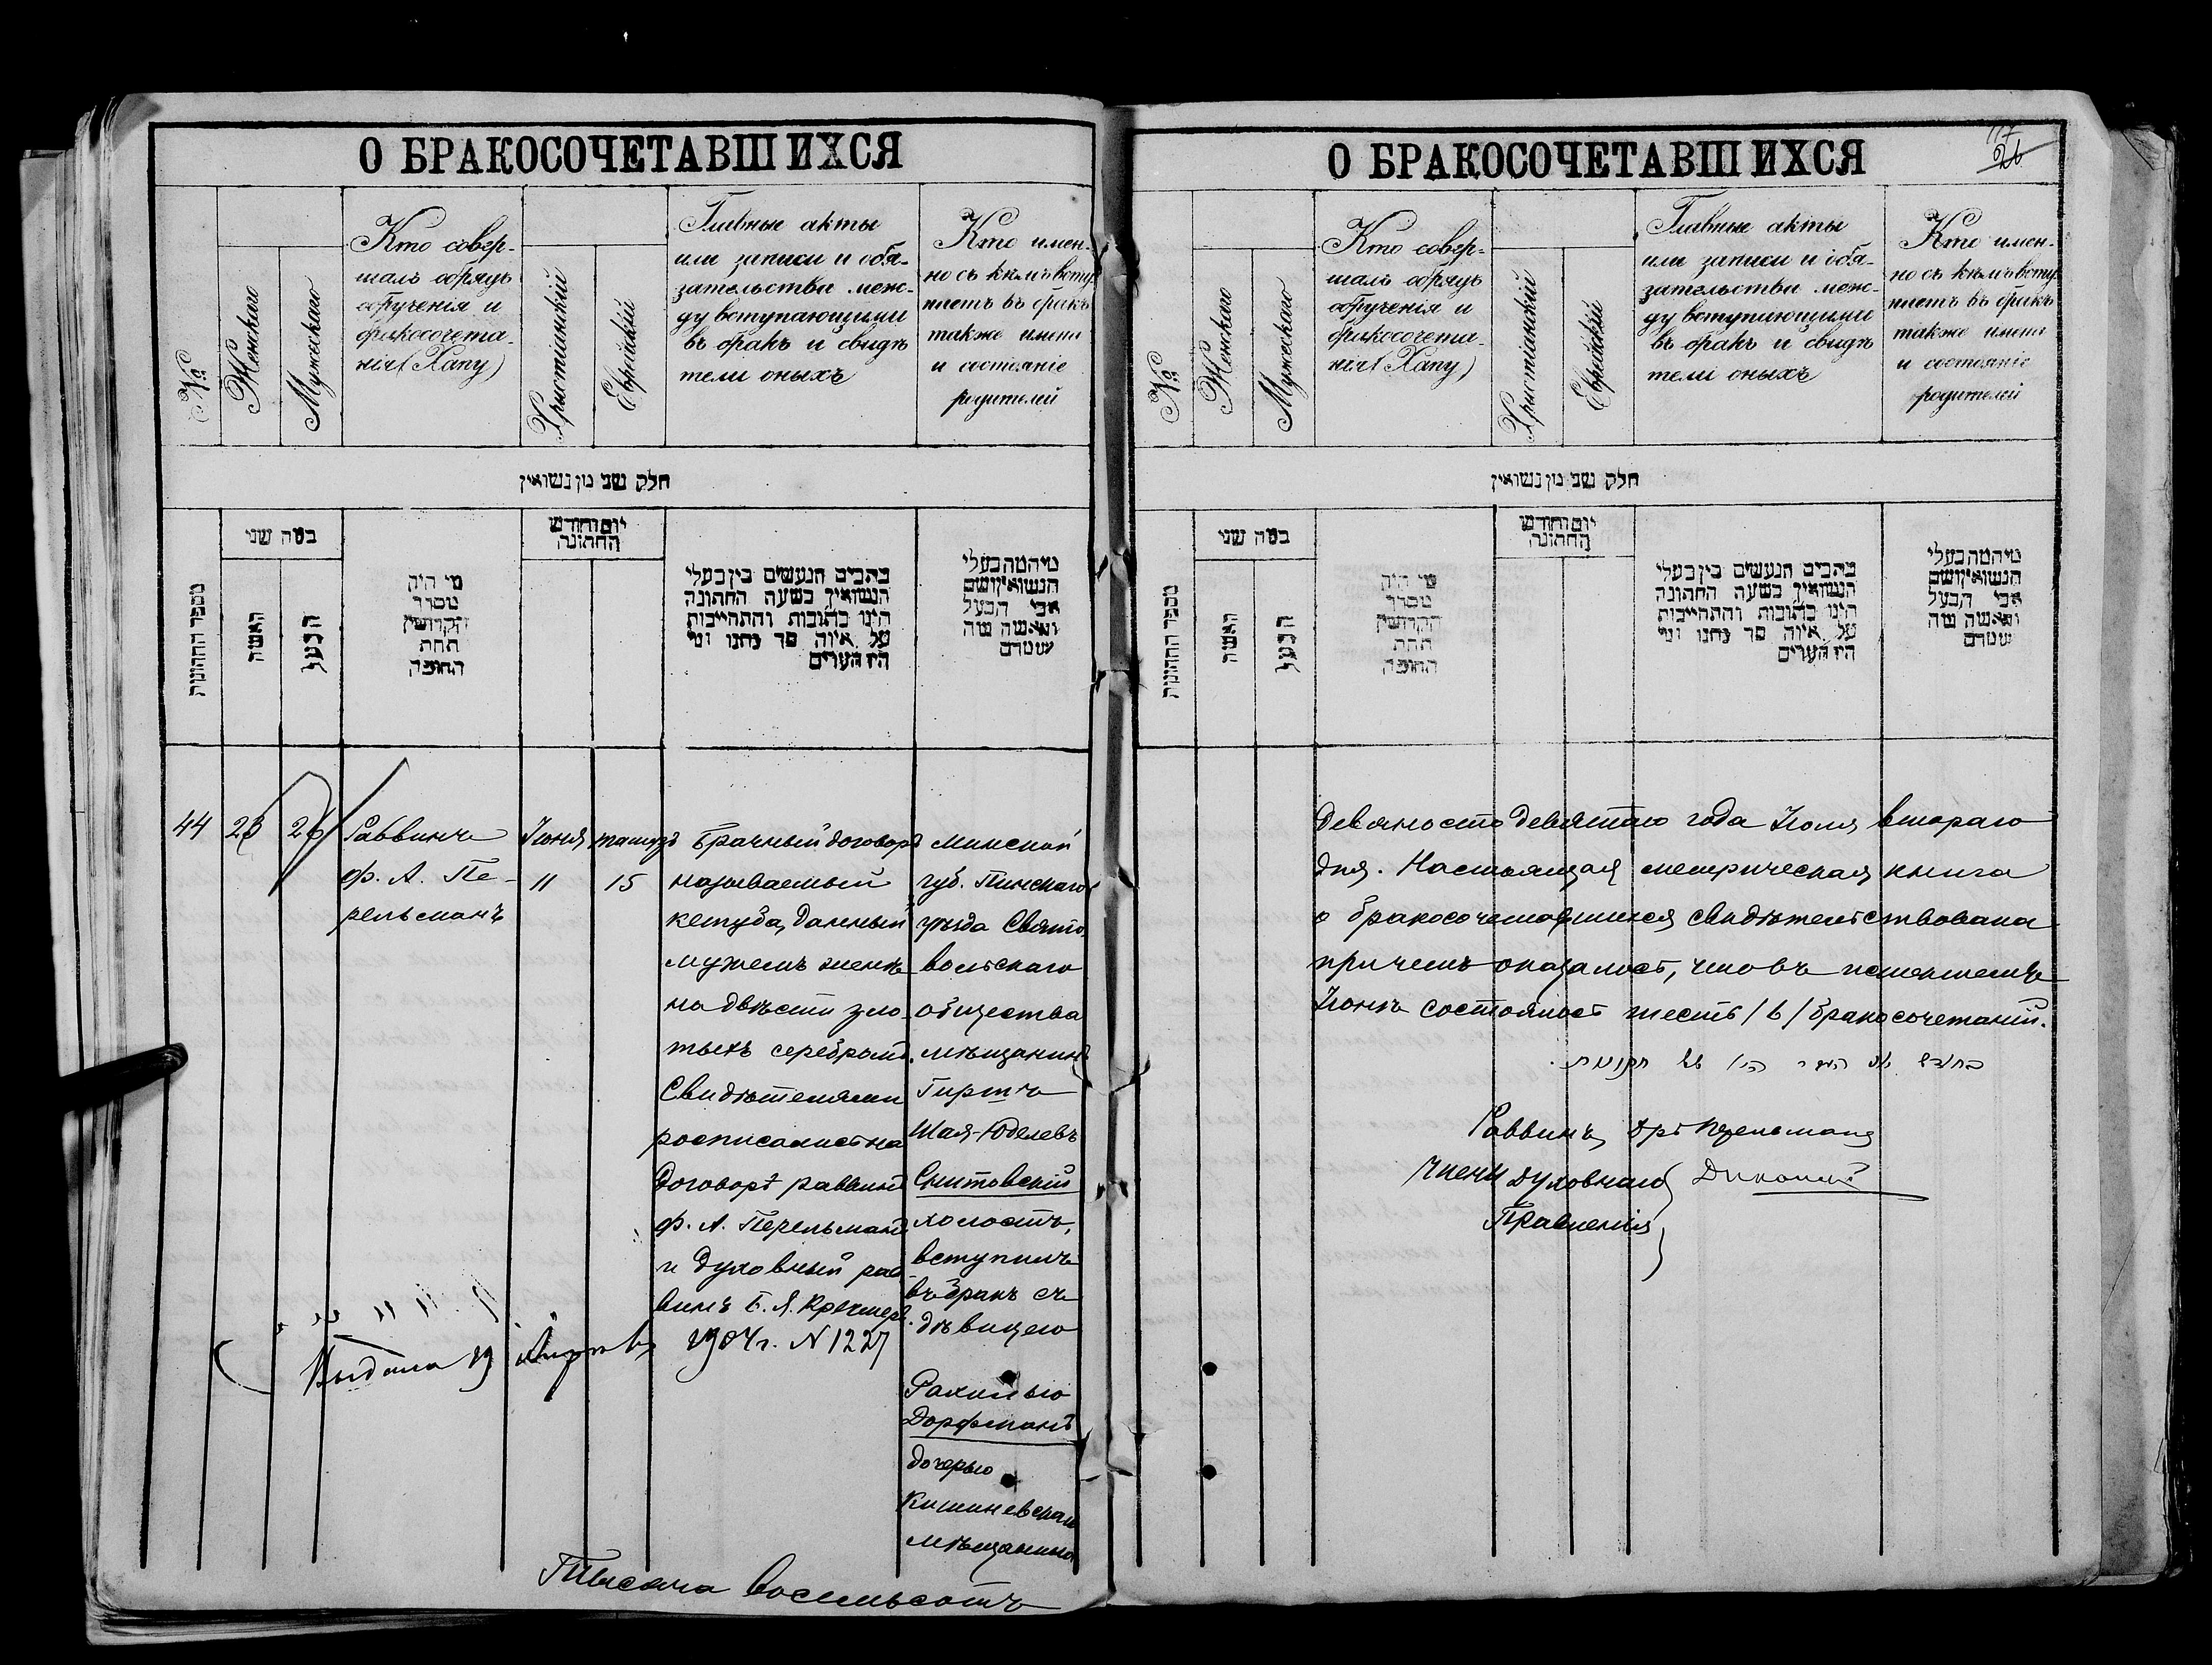 О БРАКОСОЧЕТАВШИХСЯ
№
Женскаго
Мужескаго
Кто совер-
шалъ обрядъ
обрученія и
бракосочета-
нія (Хапу)
Христіанскій
Еврейскій
Главные акты
или записи и обя-
зательства меж-
ду вступающими
въ бракъ и свидѣ
тели оныхъ
Кто имен-
но съ кѣмъ всту
паетъ въ бракъ
также имена
и состояніе
родителей
חלק שני מן נשואין
מספר החתונות
במה שני
האשה
הבעל
מי היה
מסדר
הקדושין
תחת
החופה
יום וחודש
החתונה
כתבים הנעשים בין בעלי
הנשואין בשעה החתונה
הינו כתובות והתחייבות
על איזה סך נתנו ומי
היו העדים
מי המה בעלי
הנשואין ושם
אבי הבעל
והאשה מה
שמדם
44
23
26
Раввинъ
ф. А. Пе-
рельманъ
Іюня
11
тамузъ
15
Брачный договоръ
называемый
кетуба, данный
мужемъ женѣ
на двѣсти зло-
тыхъ серебромъ.
Свидѣтелями
росписались на
договорѣ раввинъ
ф. А. Перельманъ
и духовный рав
винъ Б. Я. Кречмеръ.
Минской
губ. Пинскаго
уѣзда Свято-
вольскаго
общества
мѣщанинъ
Гиршъ
Шая-Юделевъ
Снитовскій
холостъ,
вступилъ
въ бракъ съ
дѣвицею
Рахилью
Дорфманъ
дочерью
Кишиневскаго
мѣщанина
Выдана 19 1904г. N 1227
Тысяча восемьсотъ
О БРАКОСОЧЕТАВШИХСЯ
117
26
№
Женскаго
Мужескаго
Кто совер-
шалъ обрядъ
обрученія и
бракосочета-
нія (Хапу)
Христіанскій
Еврейскій
Главные акты
или записи и обя-
зательства меж-
ду вступающими
въ бракъ и свидѣ
тели оныхъ
Кто имен-
но съ кѣмъ всту
паетъ въ бракъ
также имена
и состояніе
родителей
חלק שני מן נשואין
מספר החתונות
במה שני
האשה
הבעל
מי היה
מסדר
הקדושין
תחת
החופה
יום וחודש
החתונה
כתבים הנעשים בין בעלי
הנשואין בשעה החתונה
הינו כתובות והתחייבות
על איזה סך נתנו ומי
היו העדים
מי המה בעלי
הנשואין ושם
אבי הבעל
והאשה מה
שמדם
девяносто девятаго года Іюля втораго
дня. Настоящая метрическая книга
о бракосочетавшихся свидѣтельствована
причемъ оказалось, что въ истекшемъ
Іюнѣ состоялось шесть /6/ бракосочетаній.
Раввинъ Перельманъ
Члены Духовнаго
Правленія